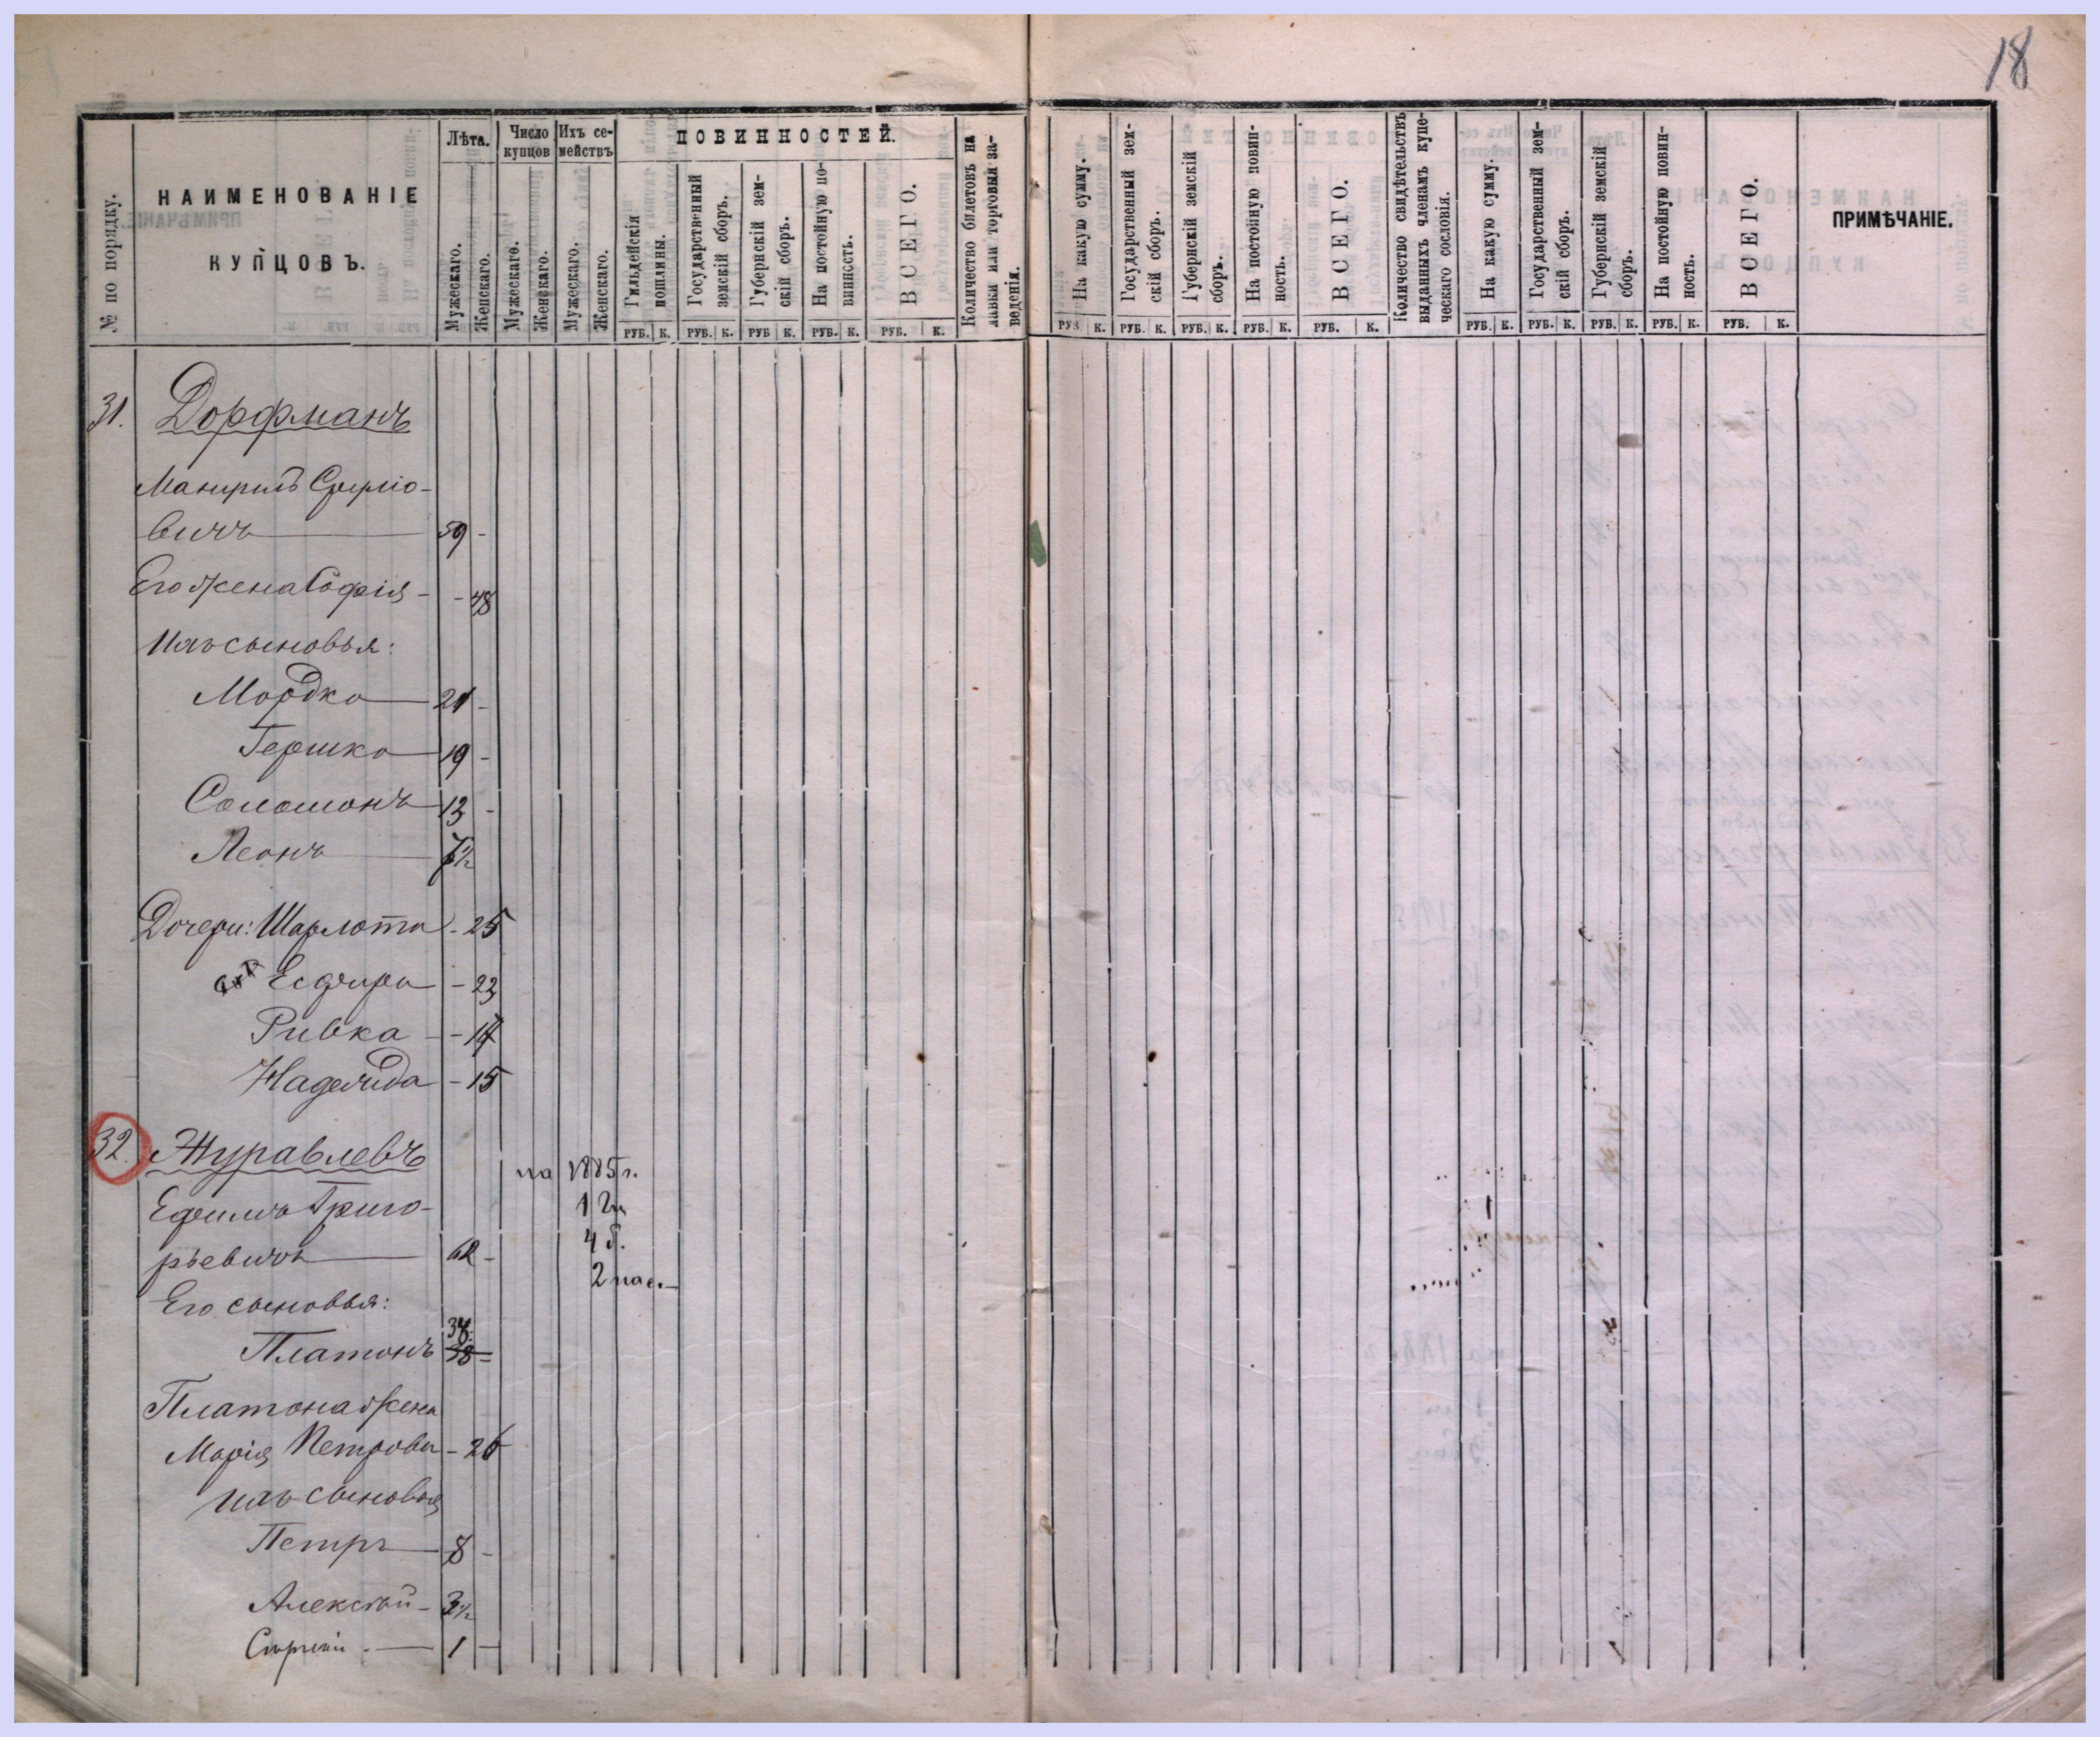 18
№ по порядку.
НАИМЕНОВАНІЕ
КУПЦОВЪ.
Лѣта.
Мужескаго.
Женскаго.
Число
купцовъ
Мужескаго.
Женскаго.
Ихъ се-
мействъ
Мужескаго.
Женскаго.
ПОВИННОСТЕЙ.
Гильдейскія
пошлины.
РУБ. К.
Государственный
земскій сборъ.
РУБ. К.
Губернскій зем-
скій сборъ.
РУБ К.
На постойную по-
винность.
РУБ. К.
ВСЕГО.
РУБ. К.
Количество билетовъ на
лавки или торговыя за-
веденія.
На какую сумму.
РУБ К.
Государственный зем-
скій сборъ.
РУБ. К.
Губернскій земскій
сборъ.
РУБ. К.
На постойную повин-
ность.
РУБ. К.
ВСЕГО.
РУБ. К.
Количество свидѣтельствъ
выданныхъ членамъ купе-
ческаго сословія.
На какую сумму.
РУБ. К.
Государственный зем-
скій сборъ.
РУБ. К.
Губернскій земскій
сборъ.
РУБ. К.
На постойную повин-
ность.
РУБ. К.
ВСЕГО.
РУБ. К.
ПРИМѢЧАНІЕ.
31. Дорфманъ
вичъ 59 -
Его жена Софія - - 48
Ихъ сыновья:
Мордко 21 -
Гершко 19 -
Соломонъ 13 -
Леонъ 7½
Дочери: Шарлота - 25
Есфирь - 23
Ривка - 17
Надежда - 15
32. Журавлевъ
на 1885 г.
Ефимъ Григо-
1 2 г
рьевичъ 62 -
4 б.
2 пас.
Его сыновья:
34
Платонъ 38 -
Платона жена
Марія Петровна - 26
ихъ сыновья
Петръ 8 -
Алексѣй - 3½
Сергѣй - 1 -